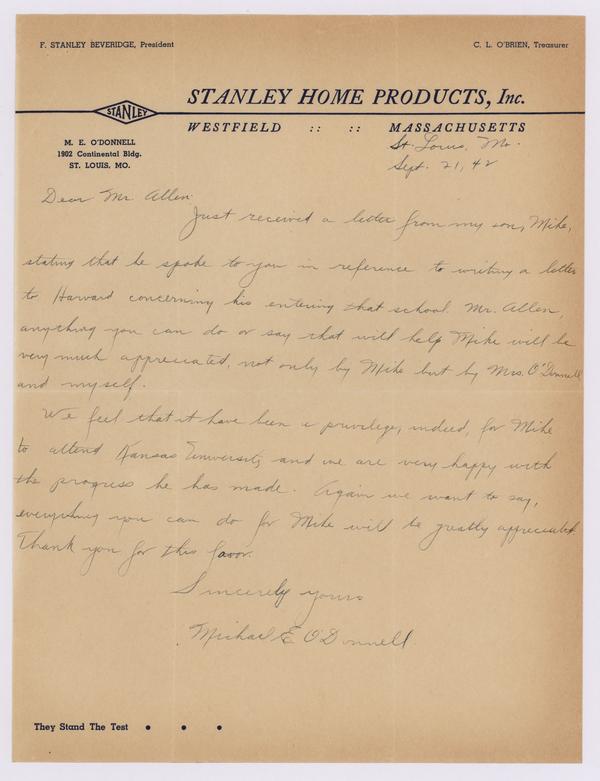 F. STANLEY BEVERIDGE, President
C. L. O'BRIEN, Treasurer
STANLEY HOME PRODUCTS, Inc.
STANLEY
WESTFIELD :: :: MASSACHUSETTS
M. E. O'DONNELL
1902 Continental Bldg.
ST. LOUIS, MO.
St. Louis, Mo.
Sept. 21, 42
Dear Mr. Allen
Just received a letter from my son, Mike,
stating that he spoke to you in reference to writing a letter
to Harvard concerning his entering that school. Mr. Allen,
anything you can do or say that will help Mike will be
very much appreciated, not only by Mike but by Mrs. O'Donnell
and myself.
We feel that it have been a privilege, indeed, for Mike
to attend Kansas University and we are very happy with
the progress he has made. Again we want to say,
everything you can do for Mike will be greatly appreciated.
Thank you for this favor.
Sincerely yours
Michael E. O'Donnell
They Stand The Test • • •